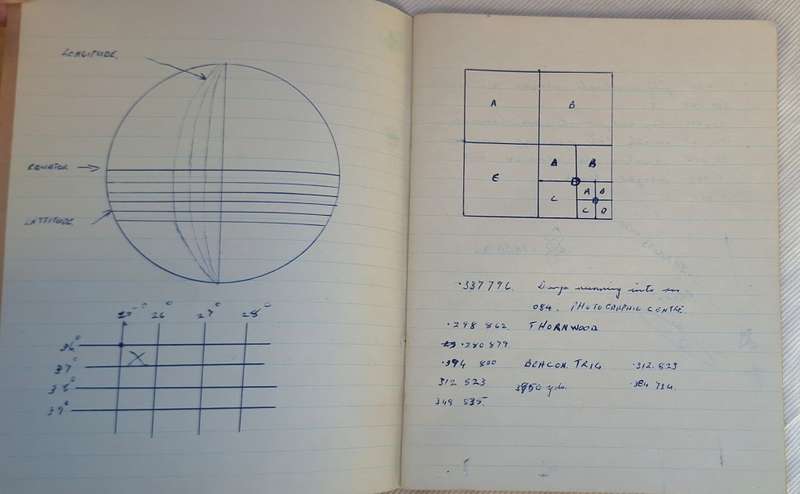 LONGITUDE.
EQUATOR
LATTITUDE
25° 26° 27° 28°
36°
X
37°
38°
39°
A B
A B
E
C
A B
C D
.337796. running into
084. PHOTOGRAPHIC CENTRE.
.298 862 THORNWOOD
.280 877
.394 800 BEACON. TRIG .312.823
312 823 3950 yds. .384 734.
349 535.